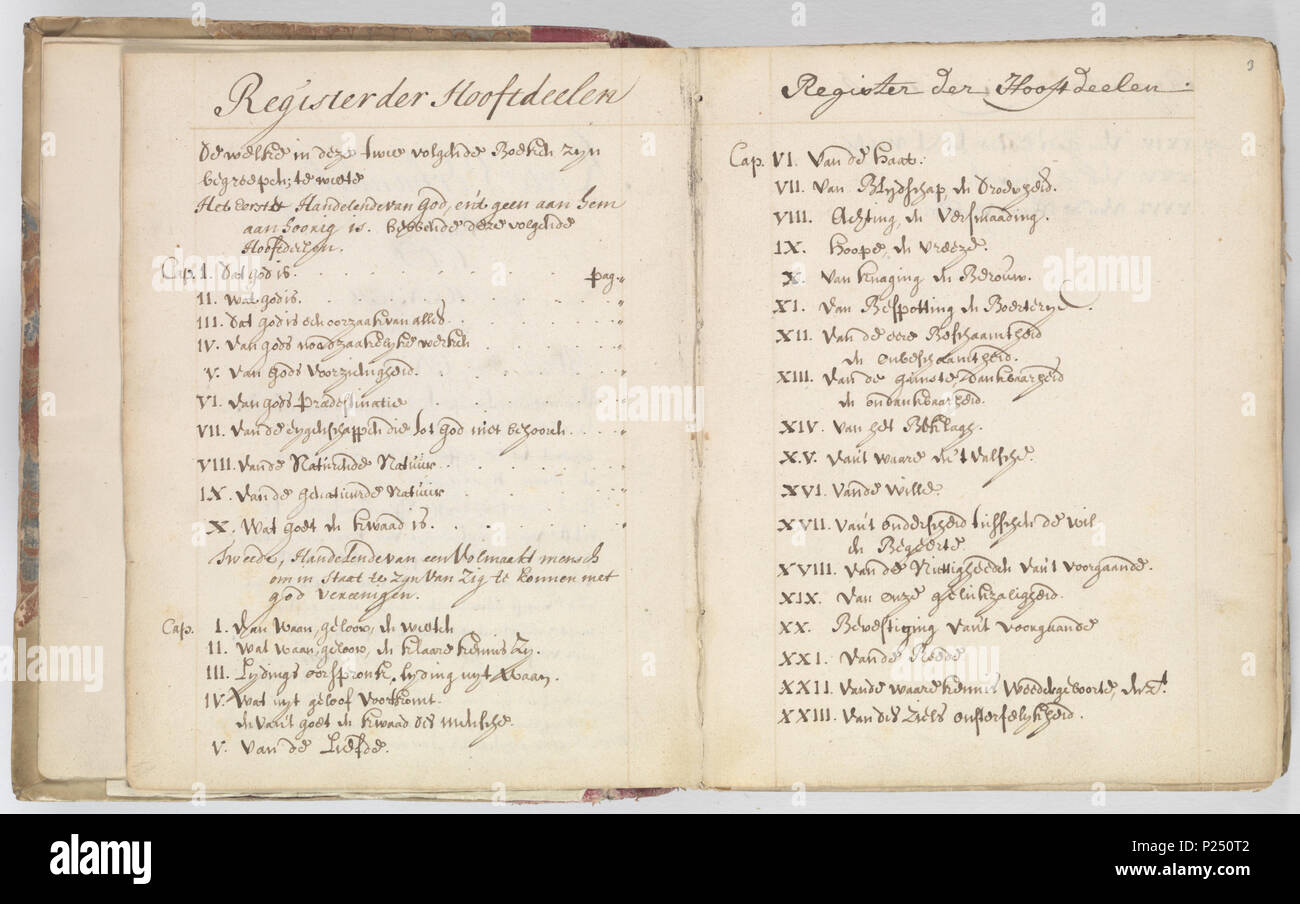 Register der Hooftdeelen
De welke in deze twee volgende Boeken zyn
begreepen; te weete
Het eerste Handelende van God, en't geen aan hem
aan hoorig is. hebbende deze volgende
Hooftdeelen.
Cap. I. Dat god is. pag.
II. Wat god is.
III. Dat god is een oorzaak van alles.
IV. Van gods noodzaakelyke werken
V. Van Gods Voorzienigheid.
VI. Van gods Prædestinatie
VII. Van de eygenschappen die tot God niet behooren.
VIII. Vande Naturende Natuur.
IX. Vande genatuurde Natuur
X. Wat goet en kwaad is.
Tweede, Handelende van een Volmaakt mensch
om in Staat te zyn van Zig te konnen met
god vereenigen.
Cap. I. Van Waan, geloov, en weeten
II. Wat waan, geloov, en klaare kennis zy.
III. Lydings oorspronk. lyding uyt waan.
IV. Wat uyt geloof Voortkomt.
en van't goet en kwaad des mensche.
V. Van de Liefde.
Register der Hooftdeelen.
3
Cap. VI. Van de haat.
VII. Van Blydschap, en Droevheid.
VIII. Achting, en Versmaading.
IX. hoope, en vreeze.
X. Van knaging en Berouw.
XI. Van Bespotting en Boerterye.
XII. Van de eere Beschaamtheid
en onbeschaamtheid.
XIII. Van de gunste, Dankbaarheid
en ondankbaarheid.
XIV. Van het Beklagh.
XV. Van't waare en't valsche.
XVI. Vande Wille.
XVII. Van't onderscheid tusschen de wil
en Begeerte.
XVIII. Van de Nuttigheeden van't voorgaande.
XIX. Van onze gelukzaligheid.
XX. Bevestiging van't voorgaande
XXI. Vande Reede
XXII. Vande waare kennis Weedergeboorte, enz.
XXIII. Van des Ziels onsterfelykheid.
alamy
alamy
Image ID: P250T2
www.alamy.com